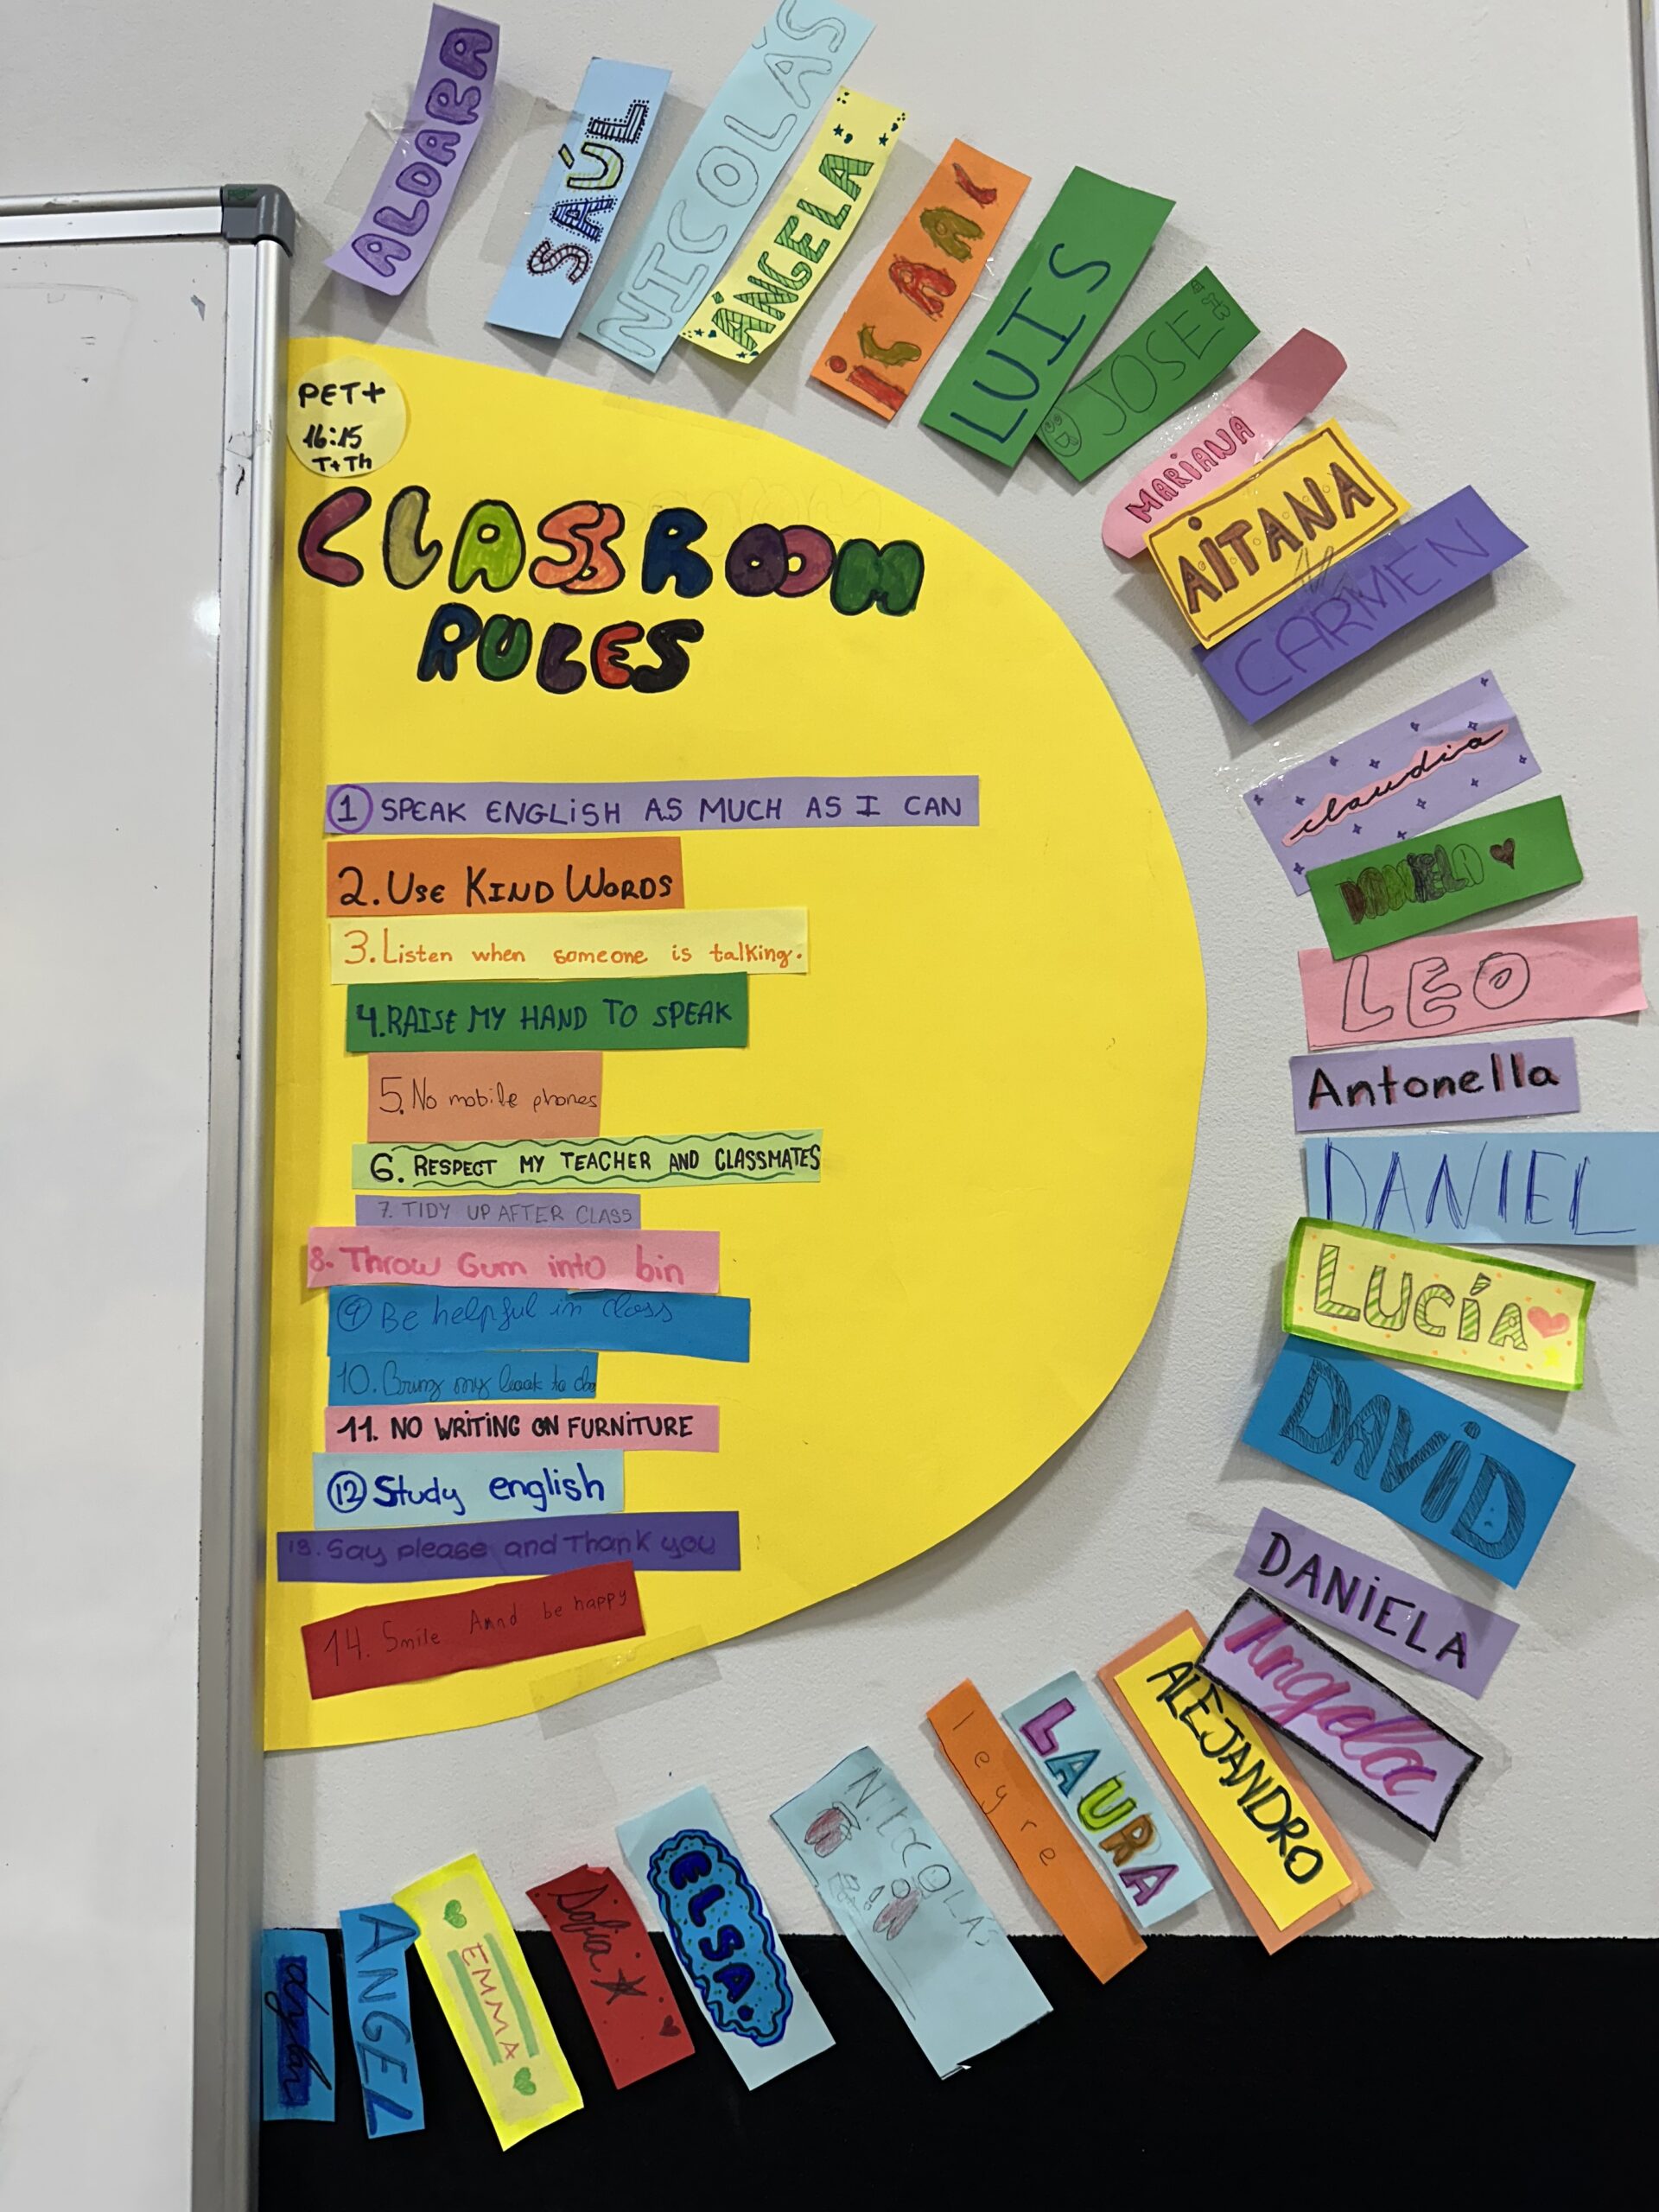 ALDARA
SAÚL
NICOLÁS
ÁNGELA
LUIS
JOSE
MARIANA
AiTANA
CARMEN
claudia
DANIELA
LEO
Antonella
DANIEL
LUCÍA
DAViD
DANiELA
Angela
ALEJANDRO
LAURA
leyre
NicCOLAS
ELSA
Sofia
EMMA
ANGEL
PET+
16:15
T+Th
CLASSROOM
RULES
1 SPEAK ENGLiSH AS MUCH AS I CAN
2. USE KIND WORDS
3. Listen when someone is talking.
4. RAISE MY HAND TO SPEAK
5. No mobile phones
6. RESPECT MY TEACHER AND CLASSMATES
7. TIDY UP AFTER CLASS
8. Throw Gum into bin
9 Be helpful in class
10. Bring my book to
11. NO WRiTiNG ON FURNiTURE
12 Study english
13. Say please and Thank you
14. Smile Annd be happy